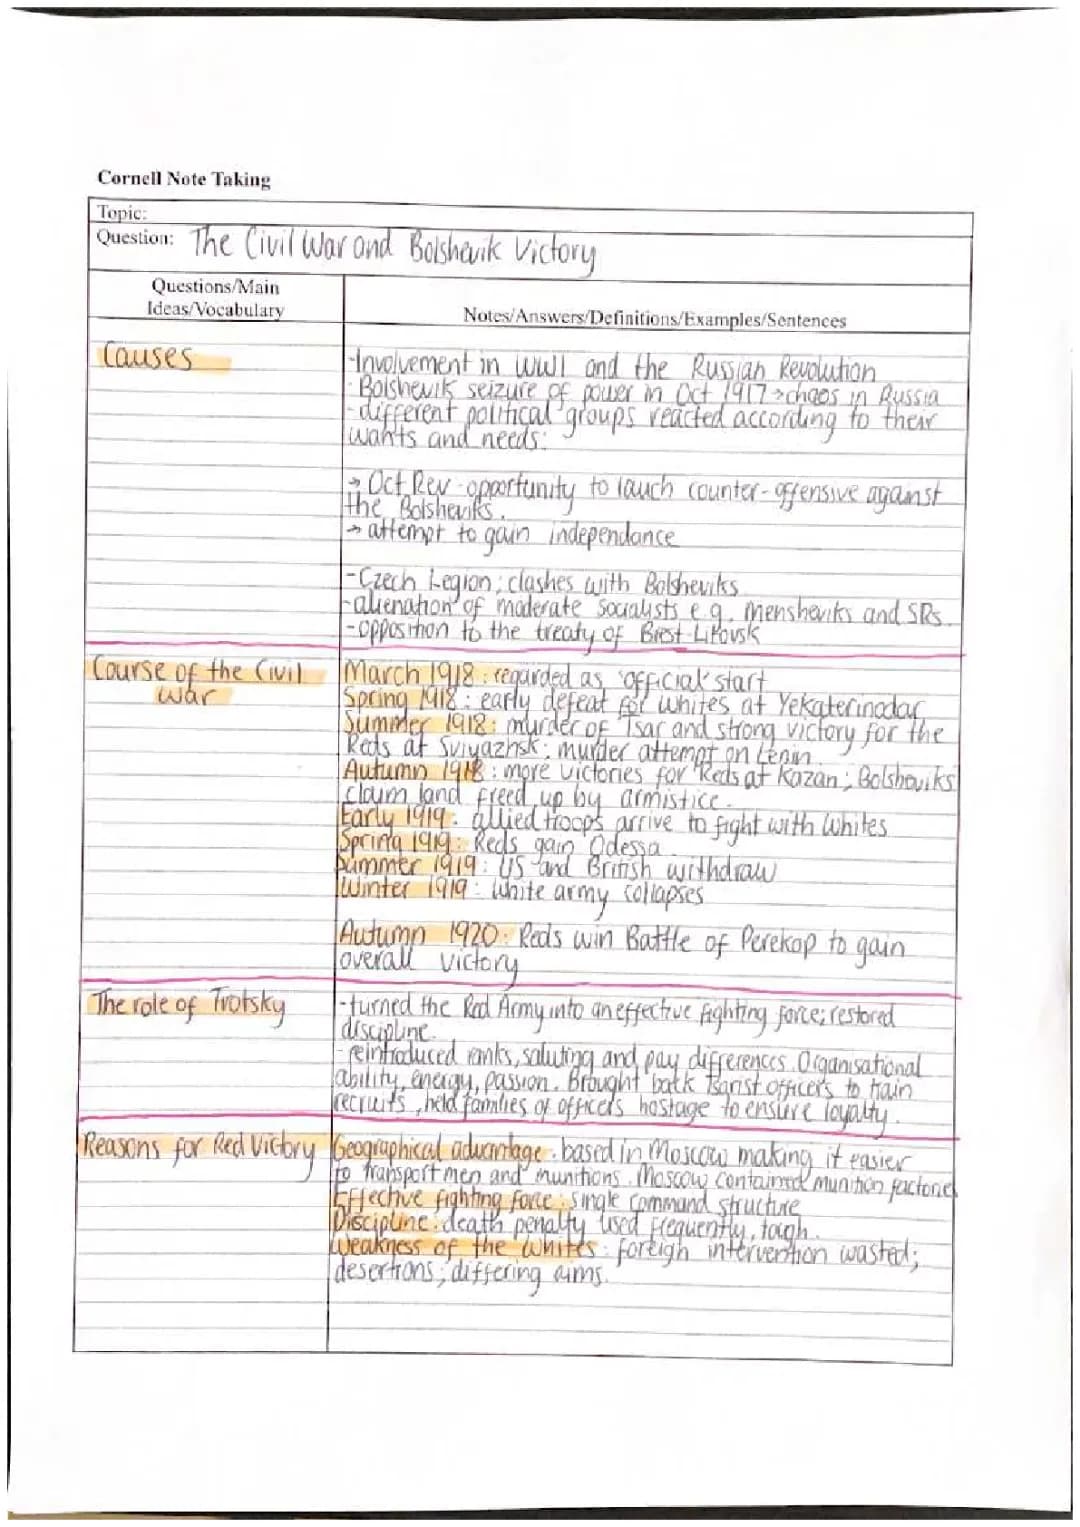 Cornell Note Taking
Topic:
Question: The Civil War and Bolshevik Victory
Questions/Main
Ideas/Vocabulary
Notes/Answers/Definitions/Examples/Sentences
Causes
-Involvement in WW1 and the Russian Revolution
- Bolshevik seizure of power in Oct 1917 → chaos in Russia
-different political groups reacted according to their
wants and needs:
→ Oct Rev - opportunity to lauch counter-offensive against
the Bolsheviks.
→ attempt to gain independance
-Czech Legion; clashes with Bolsheviks
-alienation of moderate socialists e.g. Mensheviks and SRs.
-opposition to the treaty of Brest-Litovsk
Course of the Civil
war
March 1918: regarded as 'official' start
Spring 1918: early defeat for whites at Yekaterinodar
Summer 1918: murder of Tsar and strong victory for the
Reds at Sviyazhsk; murder attempt on Lenin.
Autumn 1918: more victories for Reds at Kazan; Bolsheviks
claim land freed up by armistice.
Early 1919: allied troops arrive to fight with Whites
Spring 1919: Reds gain Odessa
Summer 1919: US and British withdraw
Winter 1919: White army collapses
Autumn 1920: Reds win Battle of Perekop to gain
overall victory
The role of Trotsky
-turned the Red Army into an effective fighting force; restored
discipline.
-reintroduced ranks, saluting and pay differences. Organisational
ability, energy, passion. Brought back Tsarist officers to train
recruits, held families of officers hostage to ensure loyalty.
Reasons for Red Victory
Geographical advantage: based in Moscow making it easier
to transport men and munitions. Moscow contained munition factories
Effective fighting force: single command structure
Discipline: death penalty used frequently, tough.
Weakness of the Whites: foreign intervention wasted;
desertions; differing aims.